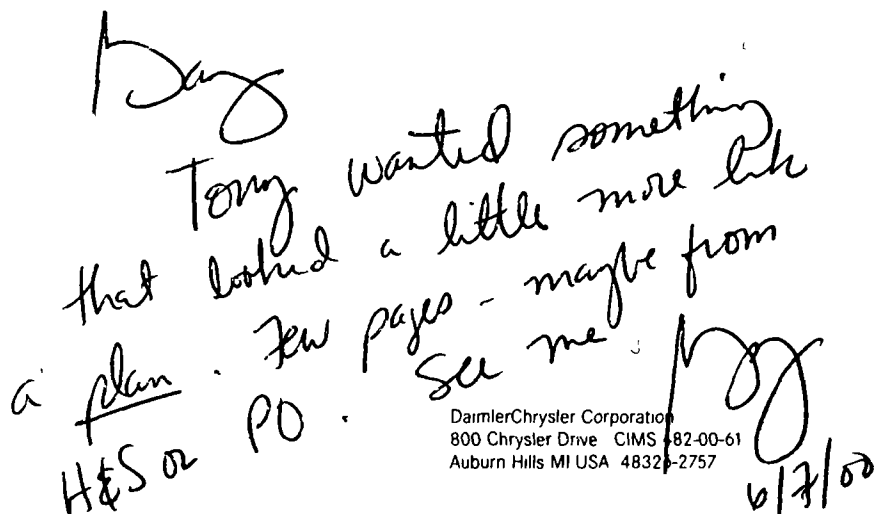 Gary
Tony wanted something
that looked a little more like
a plan. Few pages - maybe from
H&S or PO. See me.
DaimlerChrysler Corporation
800 Chrysler Drive CIMS 482-00-61
Auburn Hills MI USA 48326-2757
6/7/00